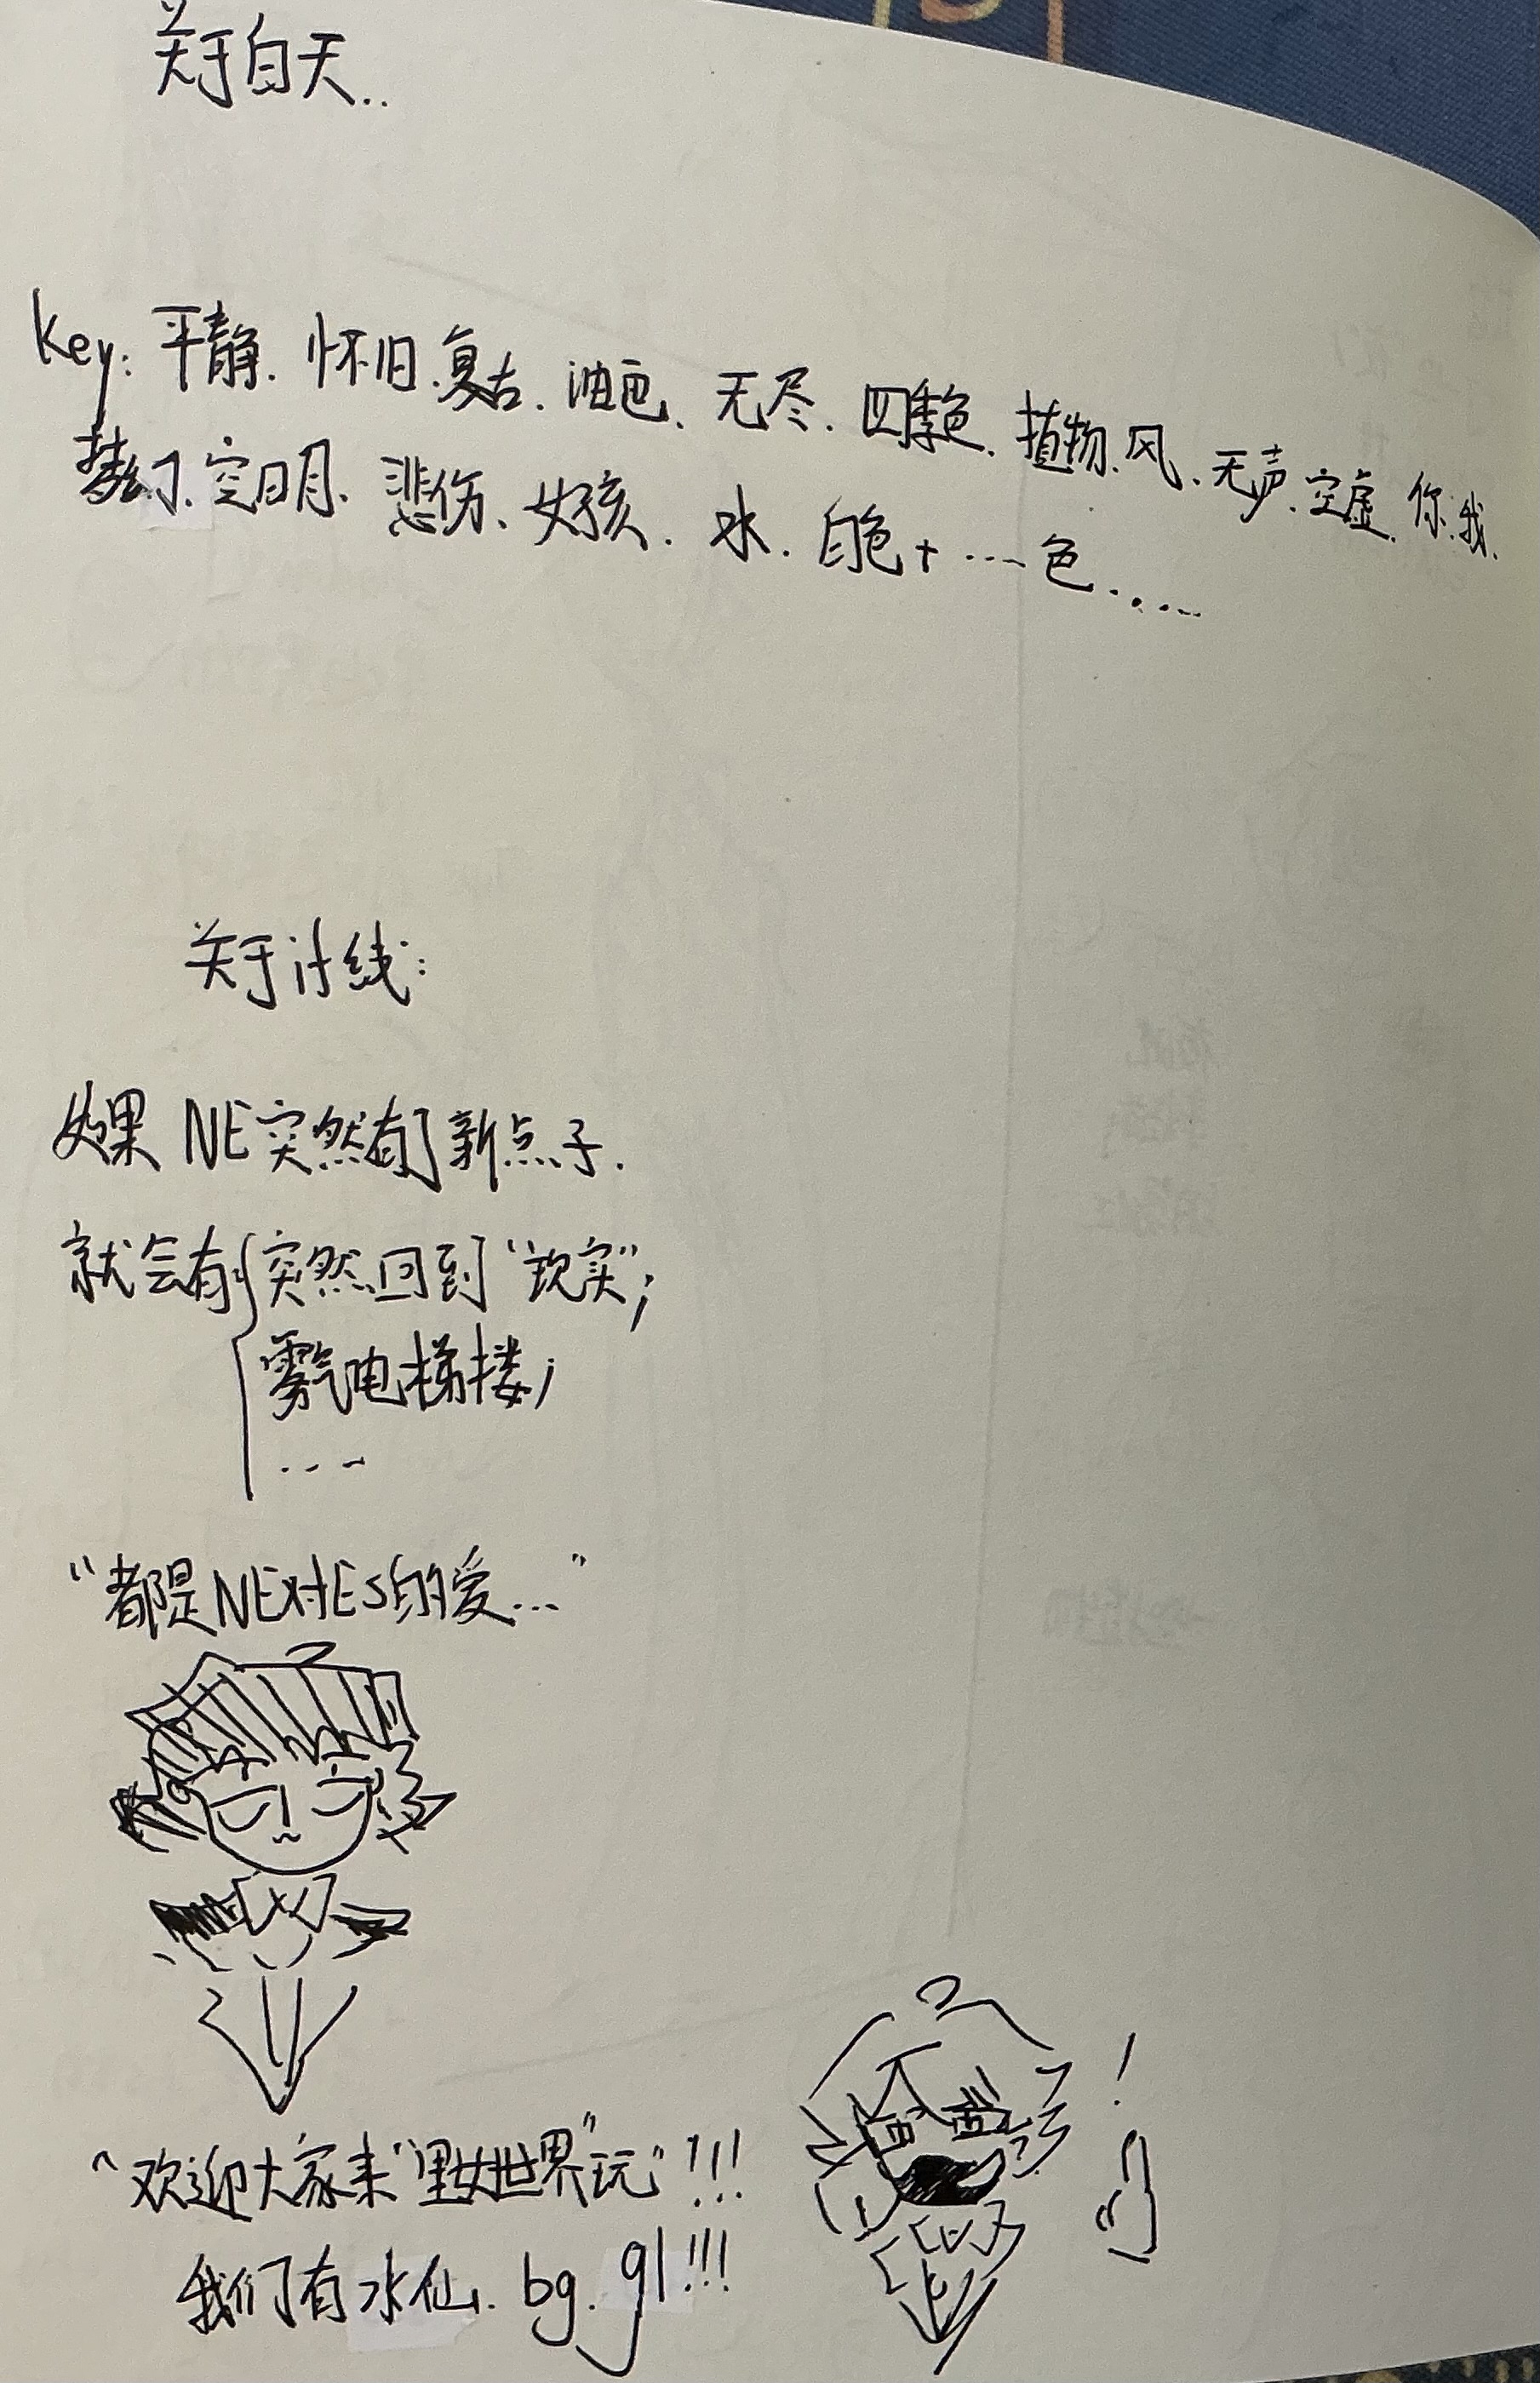 关于白天..
key: 平静. 怀旧. 复古. 油画. 无尽. 四季色. 植物. 风. 无声. 空虚. 你. 我.
梦幻. 空明. 悲伤. 女孩. 水. 白色+……色……
关于计线:
如果NE突然有了新点子.
就会有:{突然回到“现实”;
雾气电梯楼;
...
“都是NE对ES的爱...”
“欢迎大家来“里世界”玩”!!!
我们有水仙. bg. gl!!!